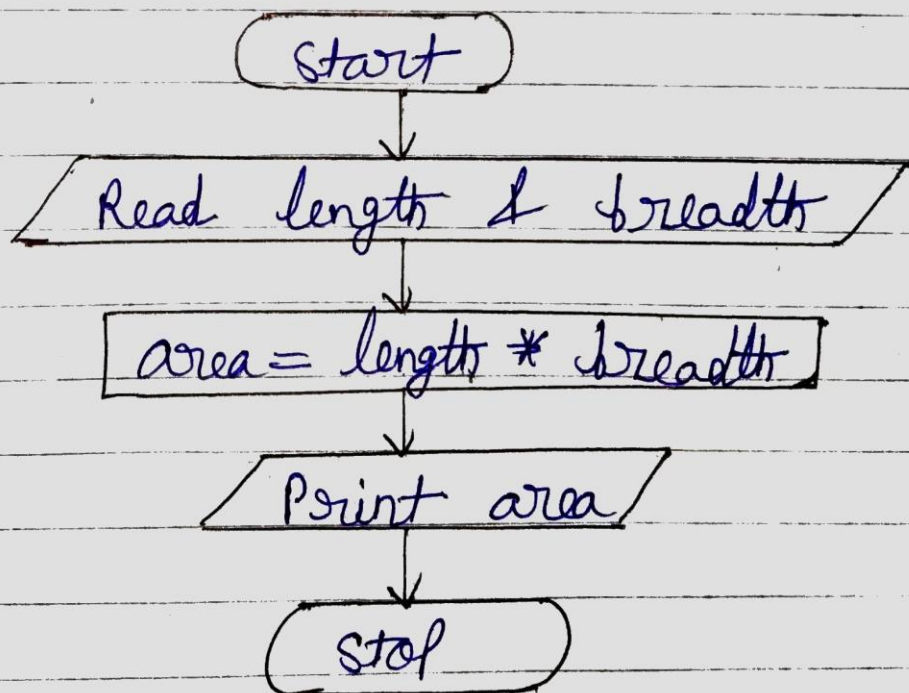 Start
Read length & breadth
area = length * breadth
Print area
Stop